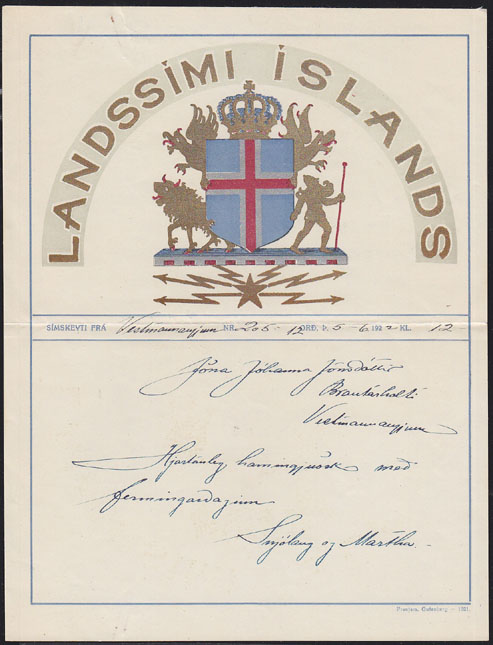 LANDSSÍMI ÍSLANDS
SÍMSKEYTI FRÁ Vestmannaeyjum NR. 205 - 12 ORÐ, Þ. 5 - 6 1922 KL. 12
Jóna Jóhanna Jónsdóttir
Brautarholti
Vestmannaeyjum
Hjartanleg hamingjuósk með
fermingardaginn
Snjólaug og Martha
Prentsm. Gutenberg — 1921.